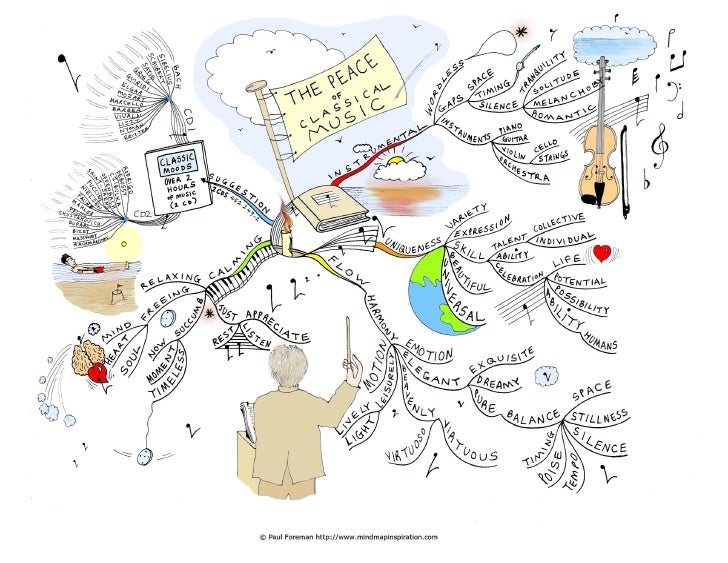 THE PEACE
OF
CLASSICAL
MUSIC
INSTRUMENTAL
WORDLESS
GAPS
SPACE
TIMING
SILENCE
TRANQUILITY
SOLITUDE
MELANCHOLY
ROMANTIC
INSTRUMENTS
PIANO
GUITAR
VIOLIN
CELLO
STRINGS
ORCHESTRA
UNIQUENESS
VARIETY
EXPRESSION
SKILL
TALENT
ABILITY
COLLECTIVE
INDIVIDUAL
CELEBRATION
LIFE
POTENTIAL
POSSIBILITY
ABILITY
HUMANS
BEAUTIFUL
UNIVERSAL
FLOW
HARMONY
EMOTION
MOTION
LEISURELY
LIVELY
LIGHT
ELEGANT
EXQUISITE
DREAMY
PURE
BALANCE
SPACE
STILLNESS
SILENCE
TIMING
POISE
TEMPO
HEAVENLY
VIRTUOSO
VIRTUOUS
CALMING
RELAXING
FREEING
MIND
HEART
SOUL
SUCCUMB
NOW
MOMENT
TIMELESS
JUST
APPRECIATE
LISTEN
REST
SUGGESTION
CLASSIC
MOODS
OVER 2
HOURS
OF MUSIC
(2 CD)
CD1
BACH
SIBELIUS
SATIE
GRIEG
ELGAR
MOZART
MARCELLO
BARBER
VIVALDI
LISZT
NYMAN
BRITTEN
CD2
RODRIGO
MAHLER
BIZET
MASCAGNI
RACHMANINOV
© Paul Foreman http://www.mindmapinspiration.com